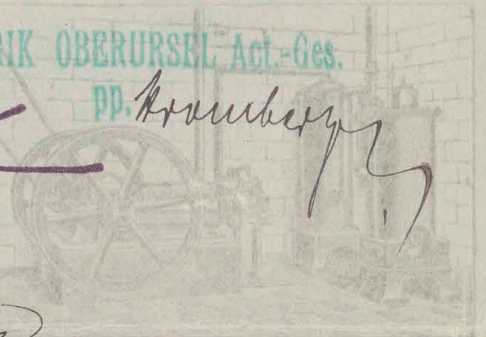 RIK OBERURSEL Act.-Ges.
pp. Kromberg